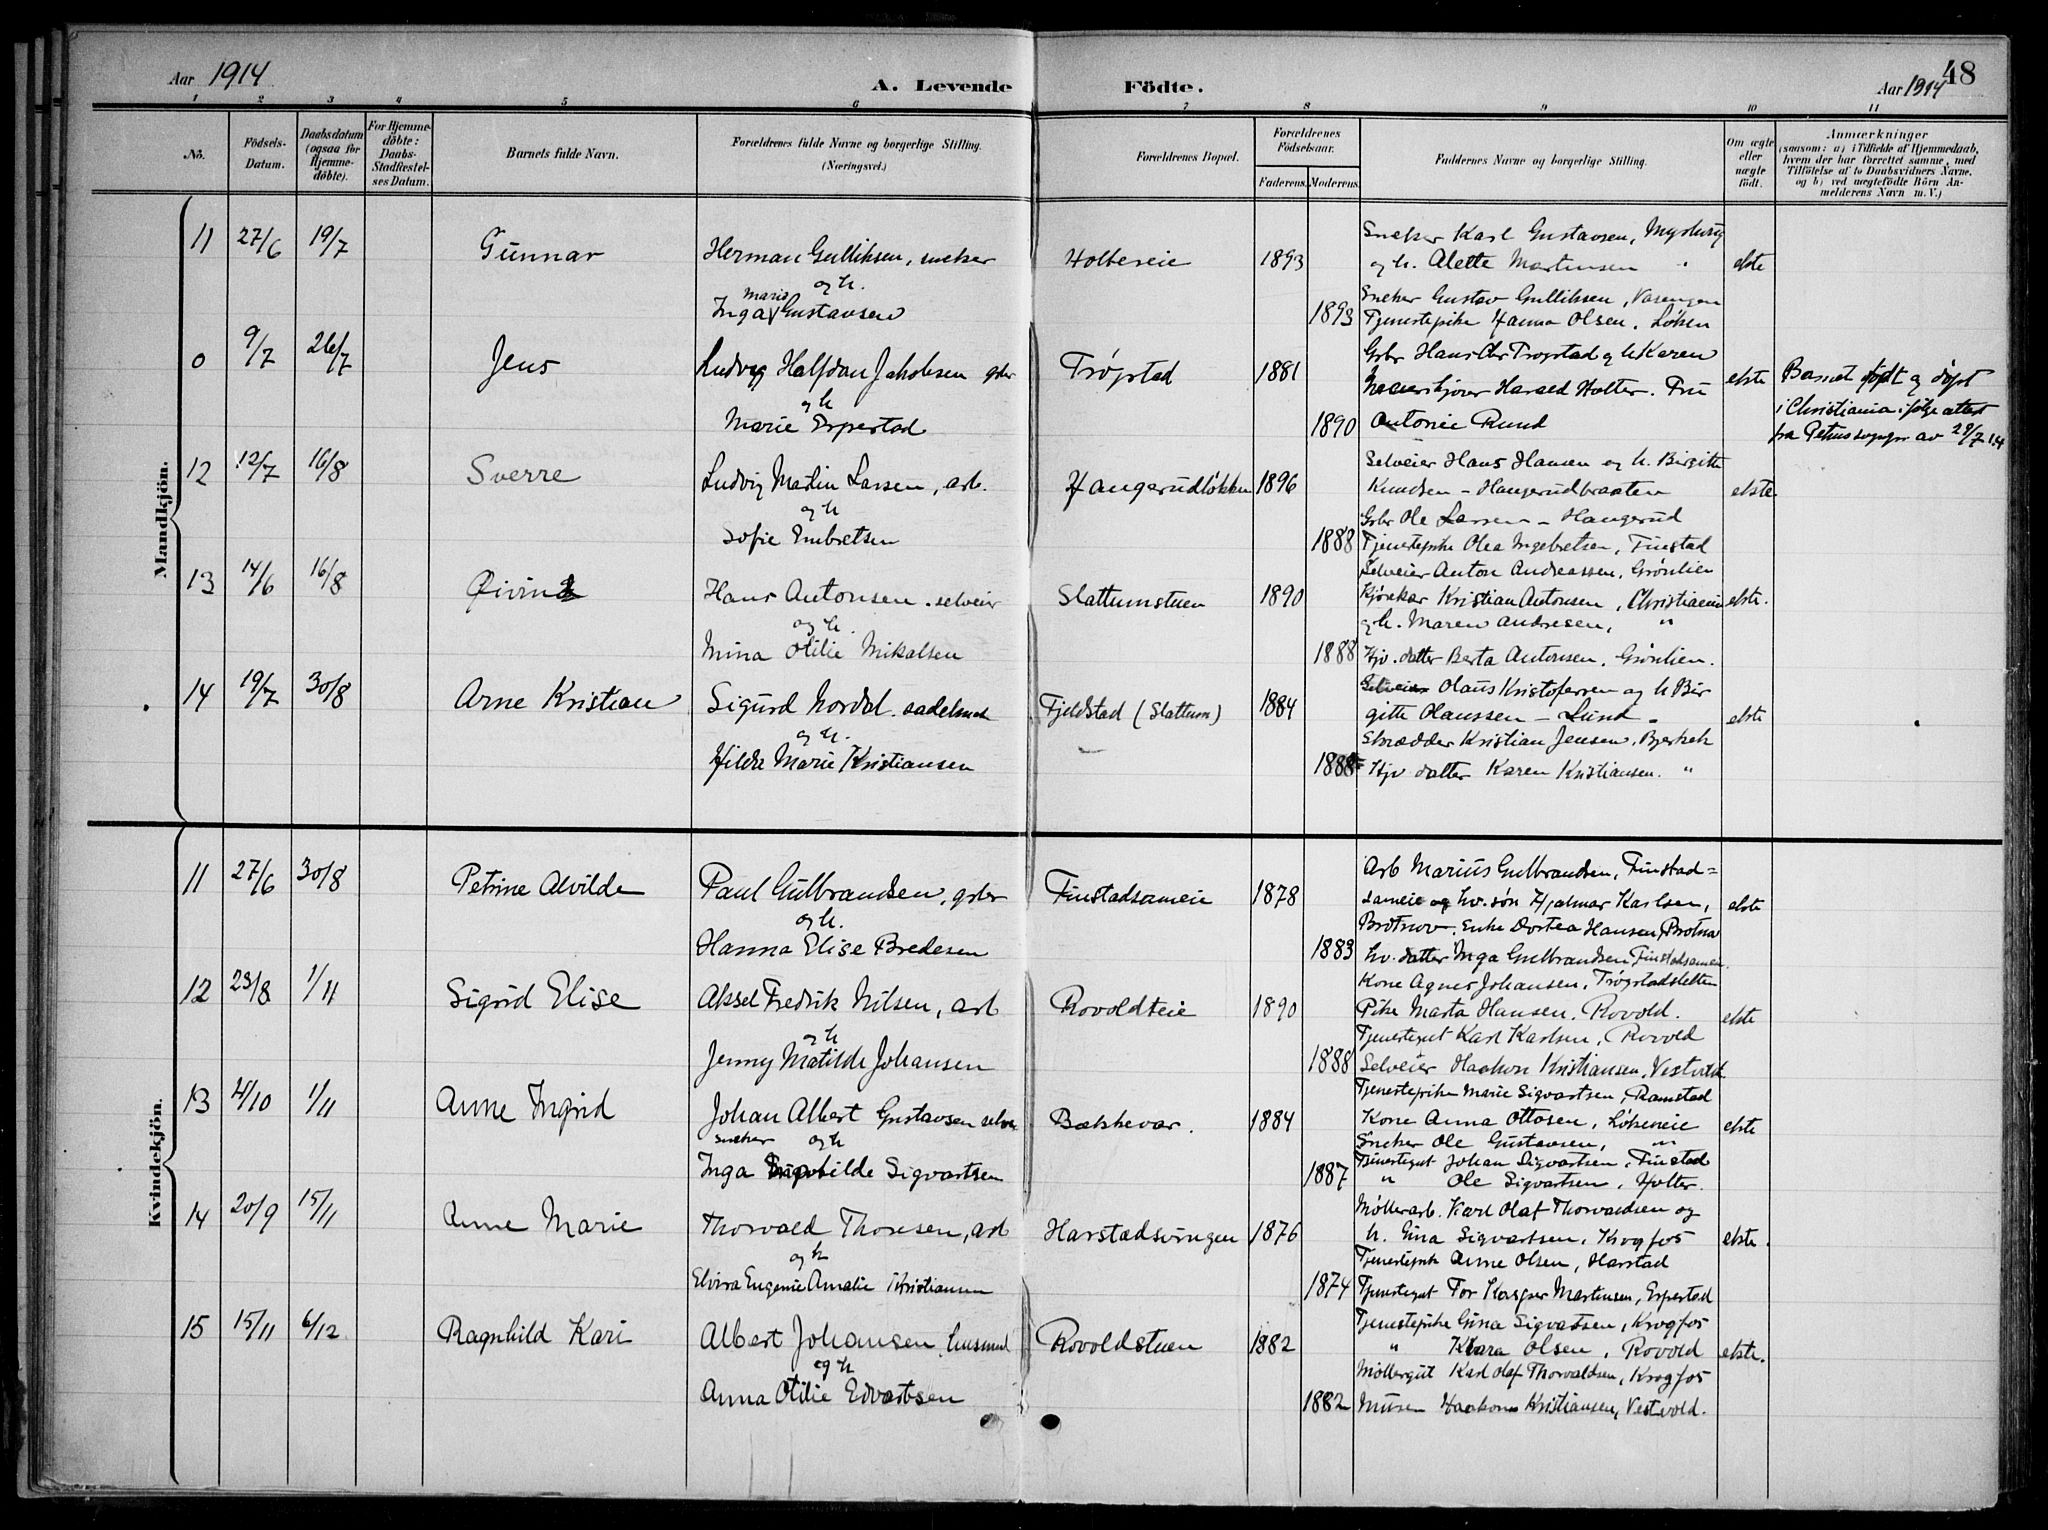 Aar 1914
A. Levende
Födte.
Aar 1914
48
1 2 3 4 5 6 7 8 9 10 11
No.
Födsels-Datum.
Daabsdatum (ogsaa for Hjemme-döbte).
For Hjemme-döbte: Daabs-Stadfæstel-ses Datum.
Barnets fulde Navn.
Forældrenes fulde Navne og borgerlige Stilling. (Næringsvei.)
Forældrenes Bopæl.
Forældrenes Födselsaar.
Faderens. Moderens.
Faddernes Navne og borgerlige Stilling.
Om ægte eller uægte födt.
Anmærkninger
(saasom: a) i Tilfælde af Hjemmedaab, hvem der har forrettet samme, med Tilföielse af to Daabsvidners Navne. og b) ved uægtefödte Börn An-melderens Navn m.V.)
Mandkjön.
11 27/6 19/7 Gunnar
Herman Gulliksen, sneker
og h.
Inga Marie Gustavsen
Holtereie 1893
1893
Sneker Karl Gustavsen, Mysburg
og h. Alette Martinsen "
Sneker Gustav Gulliksen, Vasengen
Tjenestepike Hanna Olsen. Løken
ekte
0 9/7 26/7 Jens
Ludvig Halfdan Jakobsen gbr
og h
Marie Erpestad
Trøgstad 1881
1890
Gbr Hans Chr Trogstad og h Karen
Harald Holter. Fru
Antonie Ruud
ekte
Barnet født og døpt
i Christiania ifølge attest
fra Petrus sogn av 29/7 14
12 12/7 16/8 Sverre
Ludvig Martin Larsen, arb.
og h
Sofie Embretsen
Haugerudløkken 1896
1888
Selveier Hans Hansen og h. Birgitte
Knudsen - Haugerudbraaten
Gbr Ole Larsen - Haugerud
Tjenestepike Olea Ingebretsen, Finstad
ekte.
13 14/6 16/8 Øivind
Hans Antonsen. selveier
og h.
Mina Otilie Mikalsen
Slattumstuen 1890
1888
Selveier Anton Andreassen, Grønlien
Kjørekar Kristian Antonsen, Christiania
og h. Maren Andresen, "
Hjv. datter Berta Antonsen, Grønlien.
ekte.
14 19/7 30/8 Arne Kristian
Sigurd Nordal. sadelmak
og h.
Hilda Marie Kristiansen
Fjeldstad (Slattum) 1884
1888
Selveier Olaus Kristofersen og h Bir
gitte Olaussen - Lund -
Skrædder Kristian Jensen, Bjerkek
Hjv datter Karen Kristiansen. "
ekte
Kvindekjön.
11 27/6 30/8 Petrine Alvilde
Paul Gulbrandsen, gbr
og h.
Hanna Elise Bredesen
Finstadsameie 1878
1883
Arb Marius Gulbrandsen, Finstad=
sameie og hv. søn Hjalmar Karlsen,
Brotnov. Enke Dortea Hansen, Brotnu
hv. datter Inga Gulbrandsen Finstadsamei.
ekte
12 23/8 1/11 Sigrid Elise
Aksel Fredrik Nilsen, arb
og h
Jenny Matilde Johansen
Rovoldseie 1890
1888
Kone Agnes Johansen, Trøgstadsletten
Pike Marta Hansen. Rovold.
Tjenestegut Karl Karlsen, Rovold
Selveier Haakon Kristiansen, Vestvold.
ekte
13 4/10 1/11 Anne Ingrid
Johan Albert Gustavsen selv
sneker og h
Inga Ingobilde Sigvartsen
Bækkevar. 1884
1887
Tjenestepike Marie Sigvartsen, Ramstad
Kone Anna Ottosen, Løkeneie
Sneker Ole Gustavsen, "
Tjenestegut Johan Sigvartsen, Finstad
" Ole Sigvartsen, Holter.
ekte
14 20/9 15/11 Anne Marie
Thorvald Thoresen, arb
og h
Elvira Eugenie Amalie Kristiansen
Harstadsvingen 1876
1874
Møllerarb. Karl Olaf Thorvaldsen og
h. Gina Sigvartsen, Krogfos
Tjenestepik Anne Olsen, Harstad
Tjenestegut Tor Kasper Martinsen, Erpestad
ekte.
15 15/11 6/12 Ragnhild Kari
Albert Johansen, husmand
og h
Anna Otilie Edvartsen
Rovoldstuen 1882
1882
Tjenestepike Gina Sigvartsen, Krogfos
" Klara Olsen, Rovold
Møllergut Karl Olaf Thorvaldsen, Krogfos
Murer Haakon Kristiansen, Vestvold.
ekte.